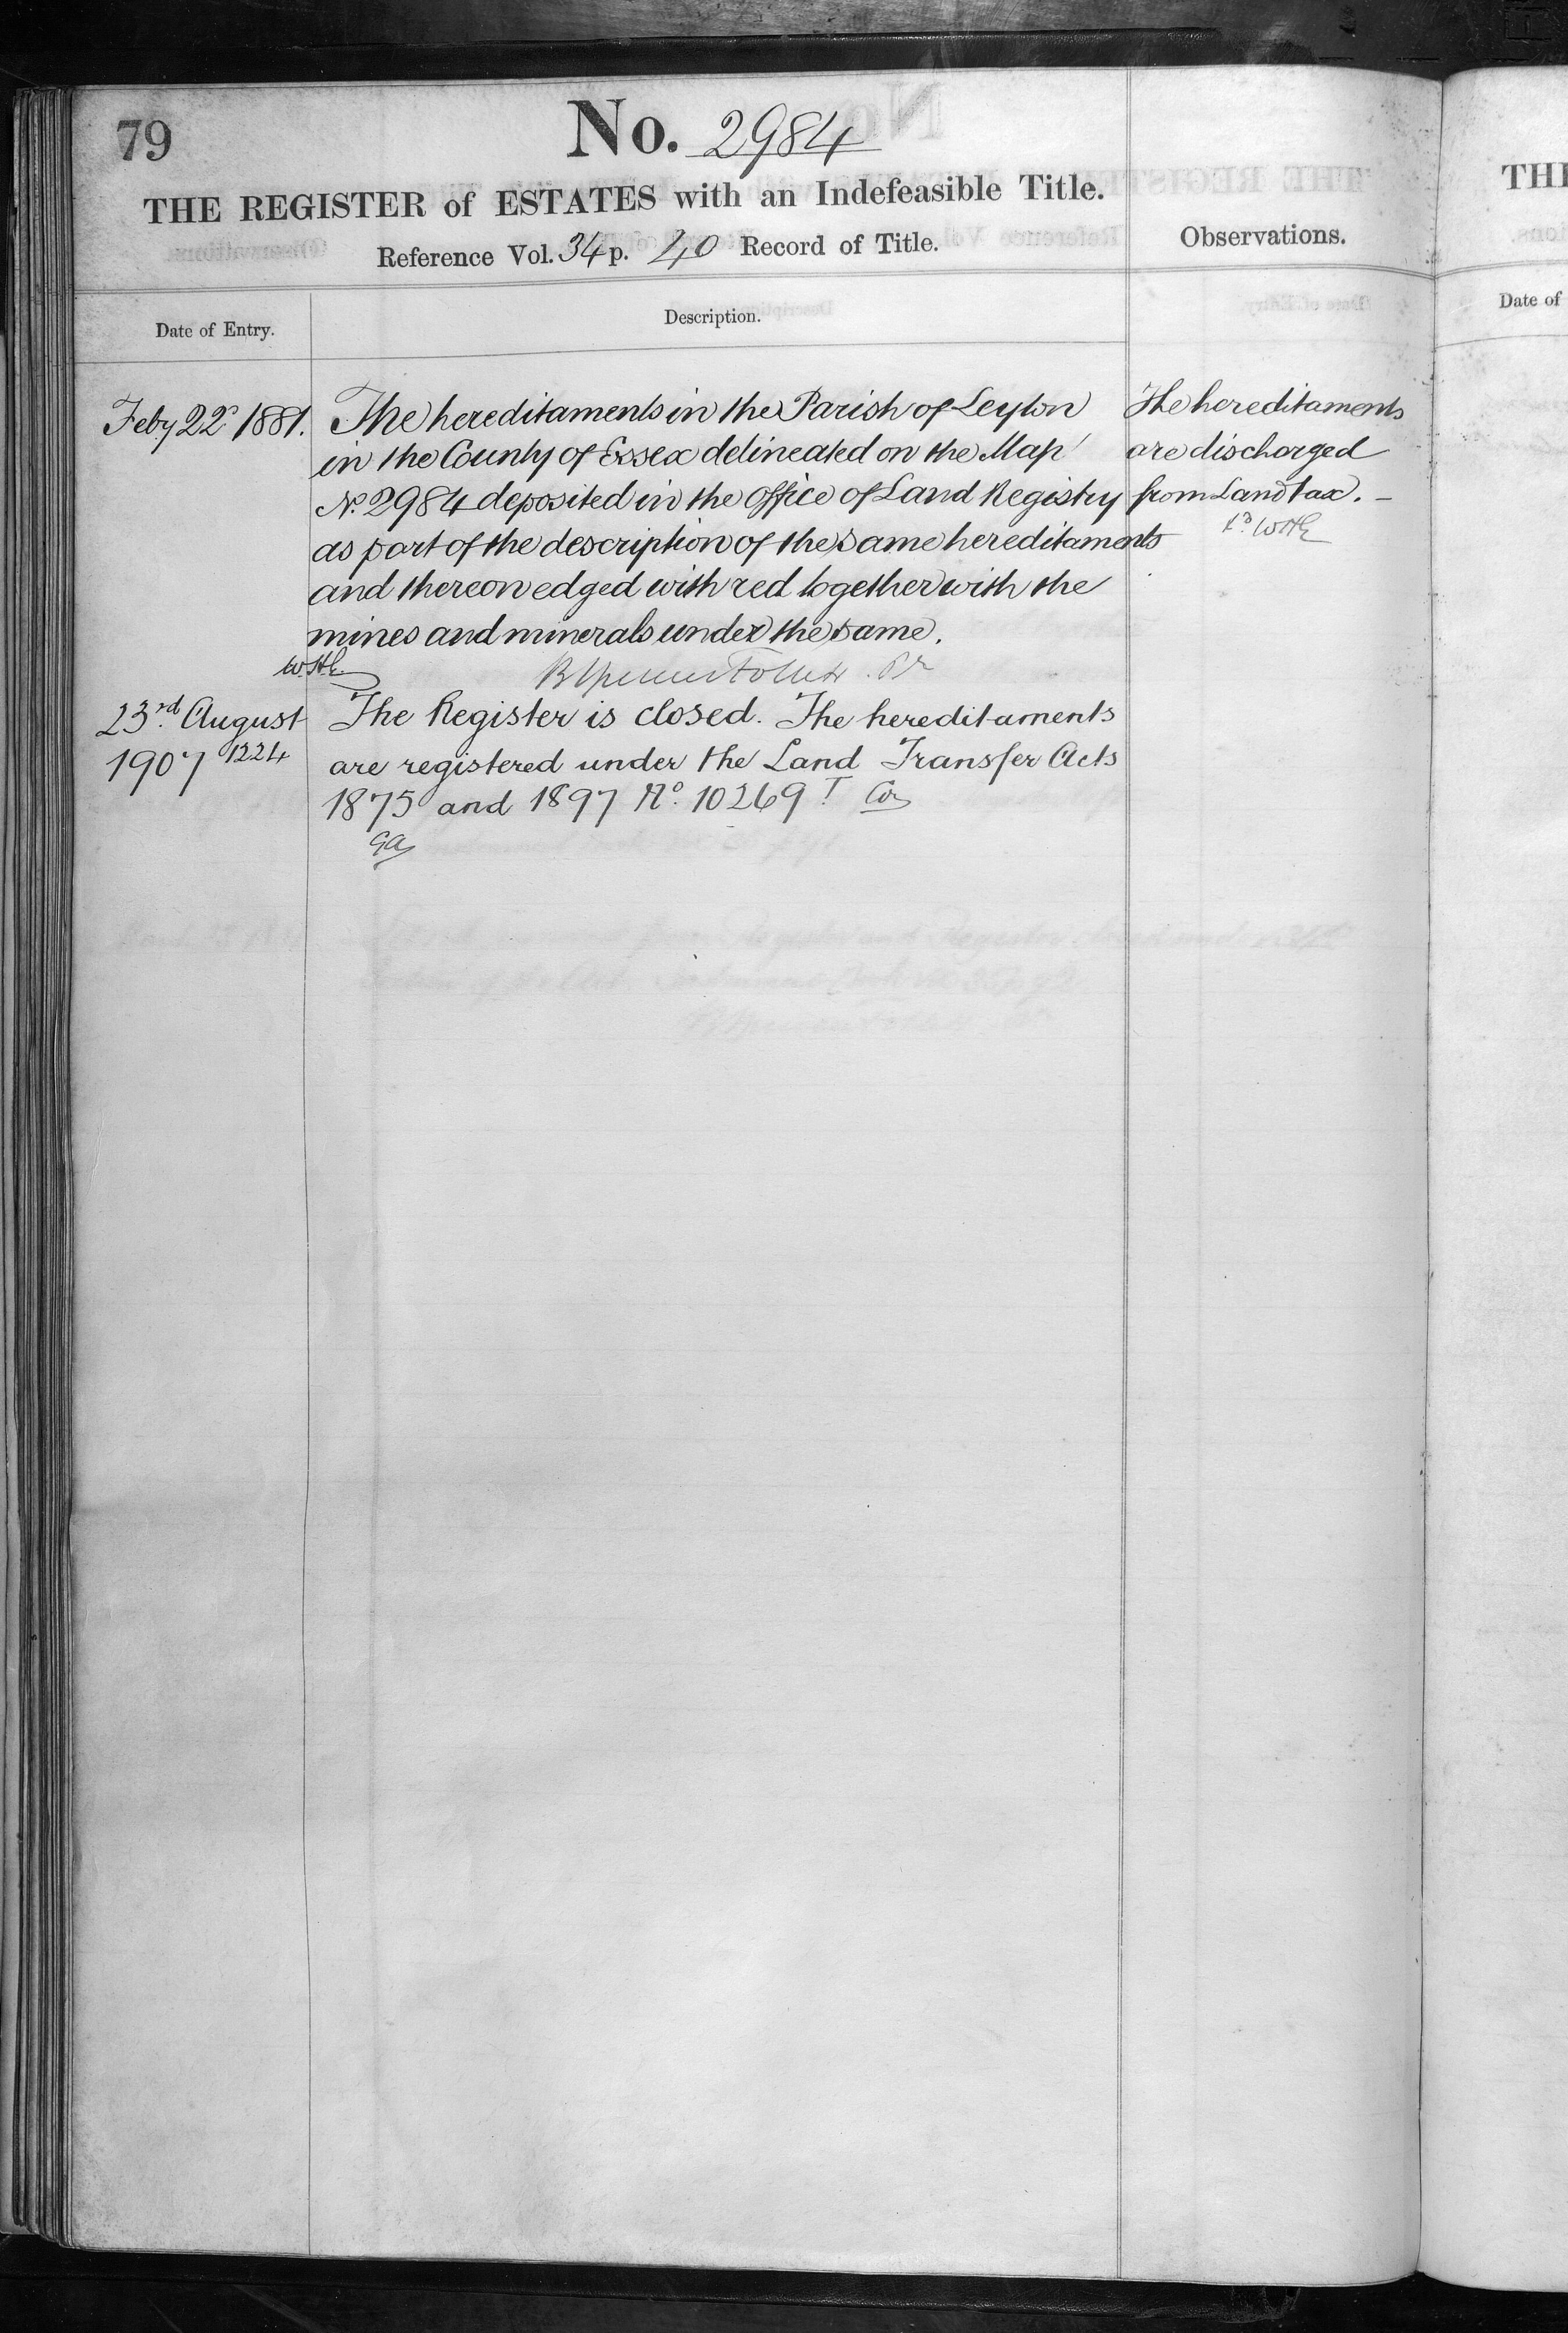 79
No. 2984
THE REGISTER of ESTATES with an Indefeasible Title.
Reference Vol. 34 p. 40 Record of Title.
Observations.
Date of Entry.
Description.
Feby 22d 1881.
The hereditaments in the Parish of Leyton
in the County of Essex delineated on the Map
No. 2984 deposited in the Office of Land Registry
as part of the description of the same hereditaments
and thereon edged with red together with the
mines and minerals under the same.
W.H.E.
The hereditaments
are discharged
from Land tax. –
WHE
23rd August
1907 1224
The Register is closed. The hereditaments
are registered under the Land Transfer Acts
1875 and 1897 No. 10269 T
GA
TH
Date of